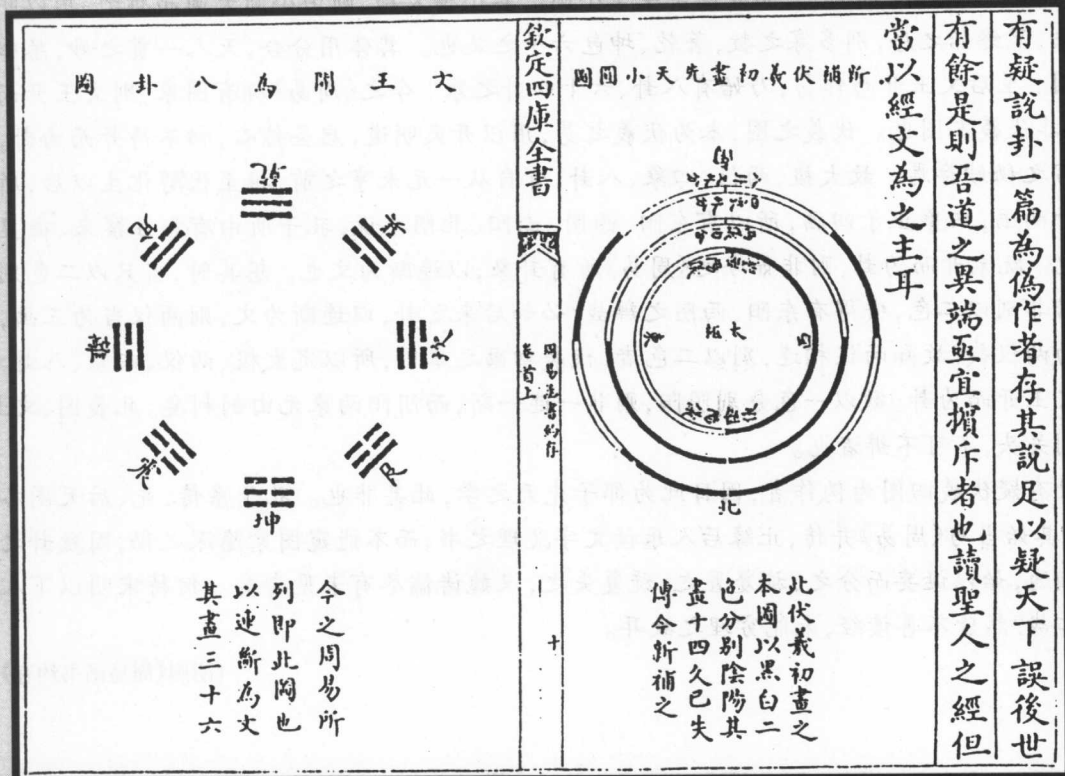 有疑說卦一篇為偽作者存其說足以疑天下誤後世
有餘是則吾道之異端亟宜擯斥者也讀聖人之經但
當以經文為之主耳
所補伏羲初畫先天小圜圖
南
太極
北
此伏羲初畫之
本圖以黑白二
色分別陰陽其
畫十四久已失
傳今新補之
欽定四庫全書
周易函書約存
卷首上
十
文王開為八卦圖
乾
坤
坎
艮
今之周易所
列即此圖也
以連斷為文
其畫三十六